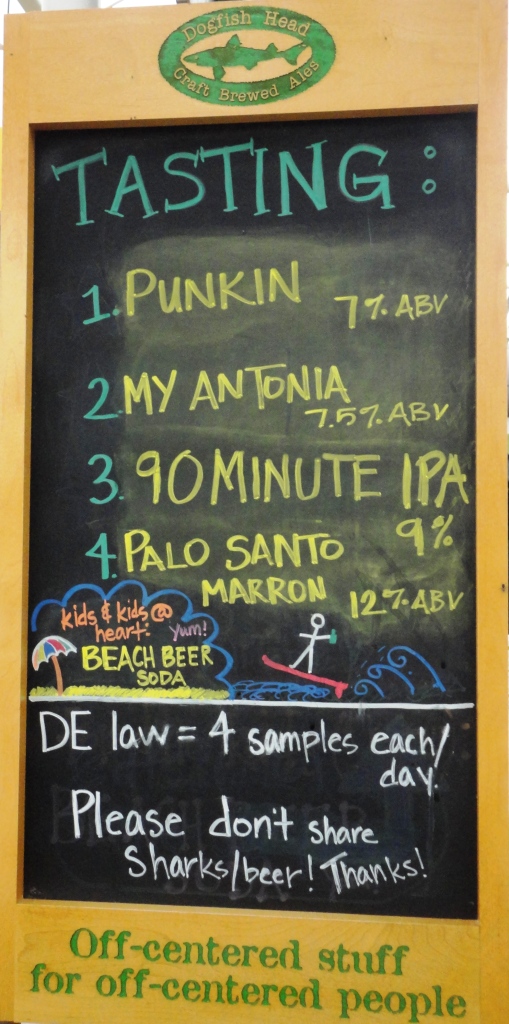 Dogfish Head
Craft Brewed Ales
TASTING:
1. PUNKIN
7% ABV
2. MY ANTONIA
7.5% ABV
3. 90 MINUTE IPA
9%
4. PALO SANTO
MARRON 12% ABV
kids & kids @
heart: yum!
BEACH BEER
SODA
DE law = 4 samples each/
day.
Please don't share
Sharks/beer! Thanks!
Off-centered stuff
for off-centered people